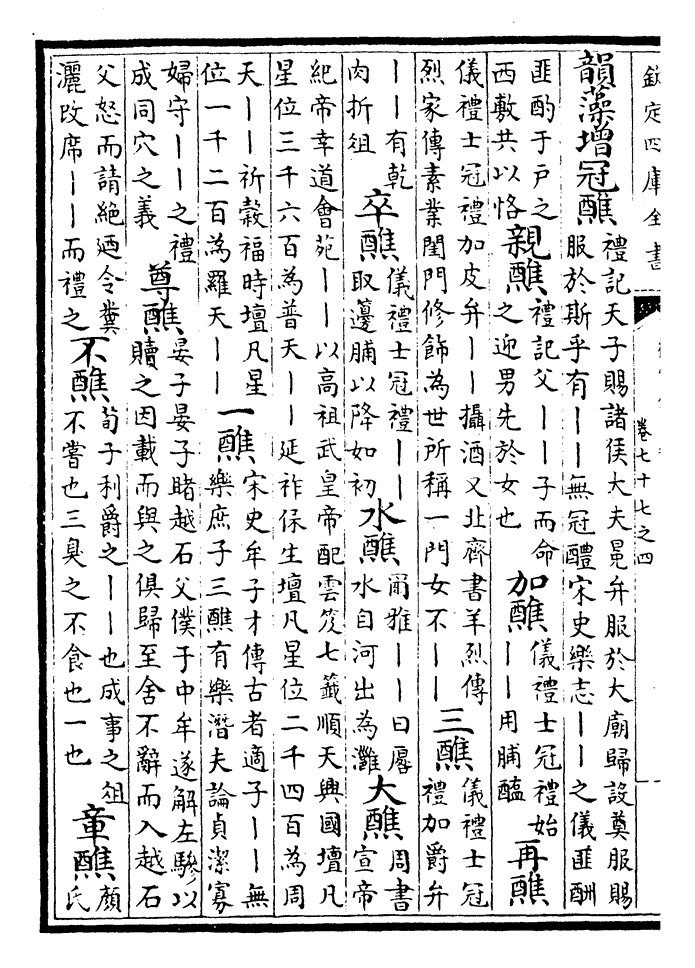 欽定四庫全書
卷七十七之四
韻藻增冠醮
禮記天子賜諸侯大夫冕弁服於大廟歸設奠服賜
服於斯乎有丨丨無冠醴宋史樂志丨丨之儀匪酬
匪酌于戸之
西敷共以恪
親醮
禮記父丨丨子而命
之迎男先於女也
加醮
儀禮士冠禮始
丨丨用脯醢
再醮
儀禮士冠禮加皮弁丨丨攝酒又北齊書羊烈傳
烈家傳素業閨門修飾為世所稱一門女不丨丨
三醮
儀禮士冠
禮加爵弁
丨丨有乾
肉折俎
卒醮
儀禮士冠禮丨丨
取籩脯以降如初
水醮
爾雅丨丨曰厬
水自河出為灉
大醮
周書
宣帝
紀帝幸道會苑丨丨以高祖武皇帝配雲笈七籖順天興國壇凡
星位三千六百為普天丨丨延祚保生壇凡星位二千四百為周
天丨丨祈穀福時壇凡星
位一千二百為羅天丨丨
一醮
宋史牟子才傳古者適子丨丨無
樂庶子三醮有樂潛夫論貞潔寡
婦守丨丨之禮
成同穴之義
尊醮
晏子晏子睹越石父僕于中牟遂解左驂以
贖之因載而與之俱歸至舍不辭而入越石
父怒而請絶廼令糞
灑改席丨丨而禮之
不醮
荀子利爵之丨丨也成事之俎
不嘗也三臭之不食也一也
童醮
顔
氏